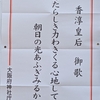 香淳皇后 御歌
あたらしき力わきくる心地して
朝日の光あふぎみるかな
大阪府神社庁